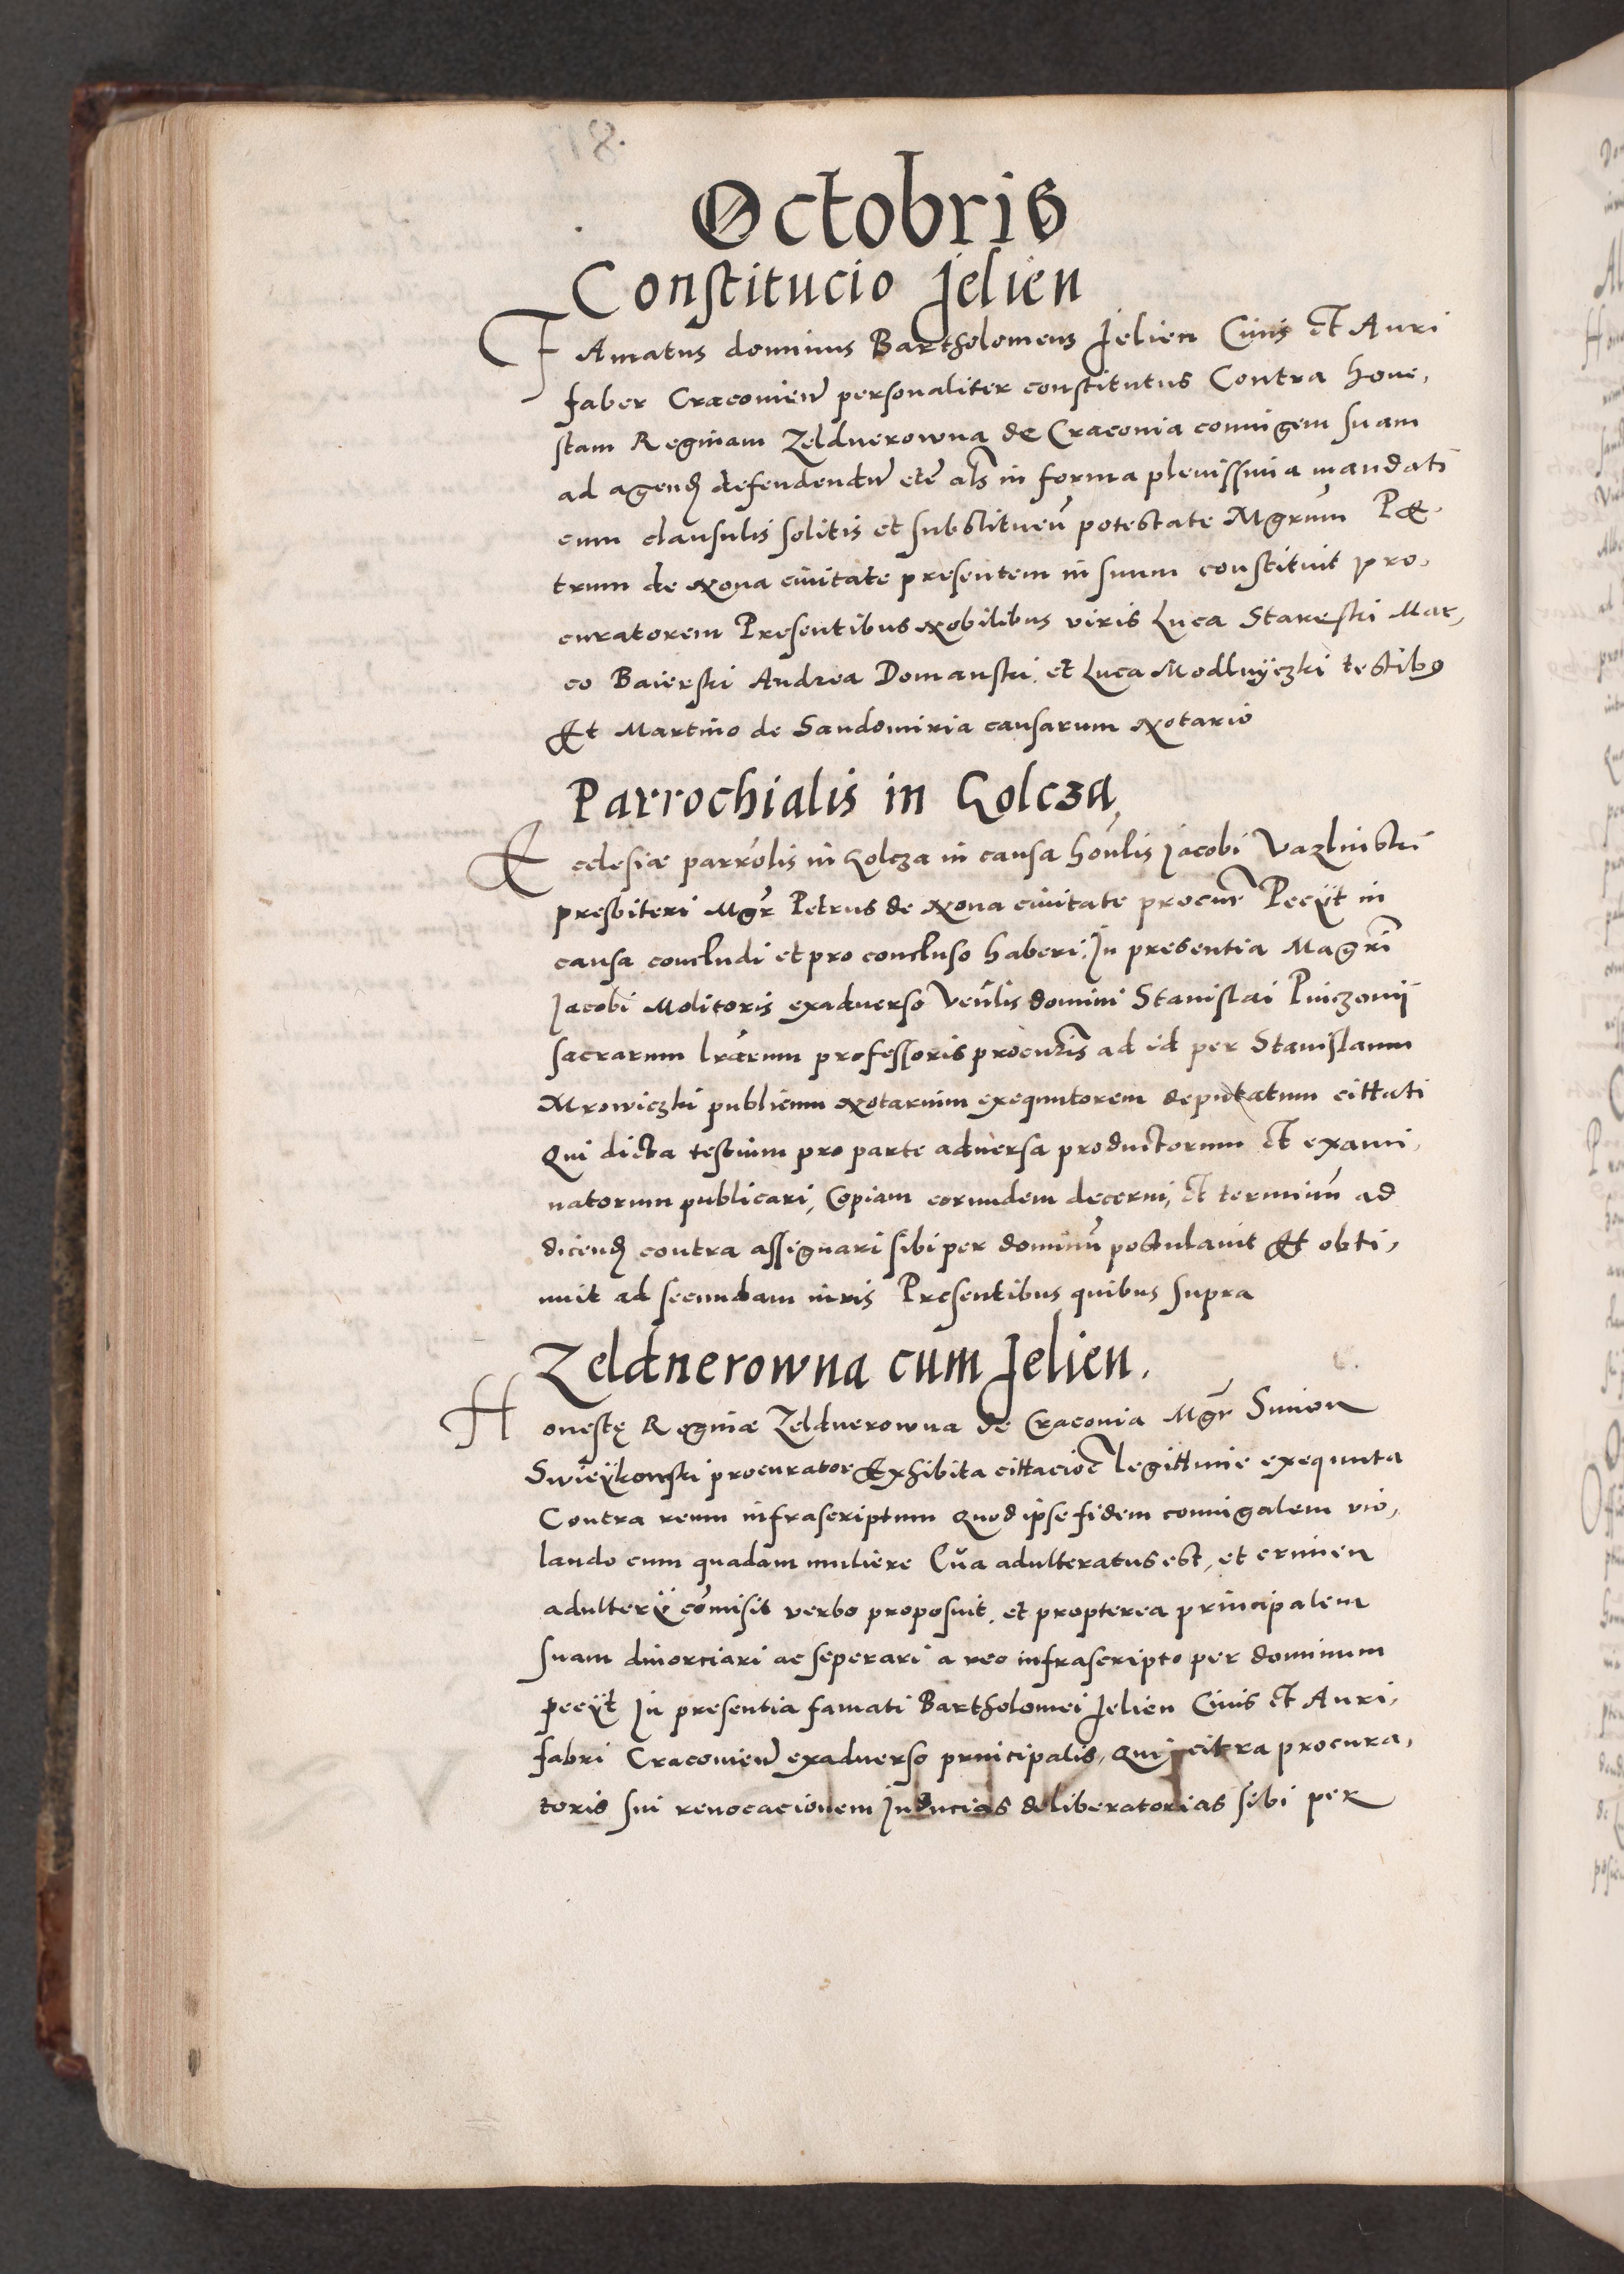 Octobris
Constitucio Jelien
FAmatus dominus Bartholomeus Jelien Civis et Auri
faber Cracovien̄ personaliter constitutus Contra hone,
stam Reginam Zeldnerowna de Cracovia coniugem suam
ad agend defendendn̄ etc̄ als̄ in forma plenissima mandati
cum clausulis solitis et substituen̄ potestate Mgrum Pe
trum de Nova civitate presentem in suum constituit pro,
curatorem Presentibus Nobilibus viris Luca Stareski Mar,
co Baierski Andrea Domanski et Luca Modlnyczki testibꝰ
Et Martino de Sandomiria causarum Notario
Parrochialis in Golcza
Ecclesiæ parrōlis in Golcza in causa honlis Jacobi Vazlinski
presbiteri Mgr̄ Petrus de Nova civitate procur̄ Pecyt in
causa concludi et pro concluso haberi. In presentia Magrī
Jacobi Molitoris exadverso Venlis domini Stanislai
sacrarum lrārum professoris procuris̄ ad id per Stanislaum
Mrowiczki publicum Notarium exequutorem deputatum cittati
Qui dicta testium pro parte adversa productorum et exami,
natorum publicari, Copiam eorundem decerni, et terminū ad
dicend contra assignari sibi per dominū postulavit Et obti,
nuit ad secundam iuris Presentibus quibus supra
Zeldnerowna cum Jelien.
Honestę Reginæ Zeldnerowna de Cracovia Mgr̄ Simon
Swieykowski procurator Exhibita cittacioē legittime exequuta
Contra reum infrascriptum Quod ipse fidem coniugalem vio,
lando cum quadam muliere adulteratus est, et crimen
adultery cōmisit verbo proposuit, et propterea principalem
suam divorciari ac seperari a reo infrascripto per dominum
pecyt In presentia famati Bartholomei Jelien Civis et Auri,
fabri Cracovien̄ exadverso principalis, Qui citra procura,
toris sui revocacionem Inducias deliberatorias sibi per